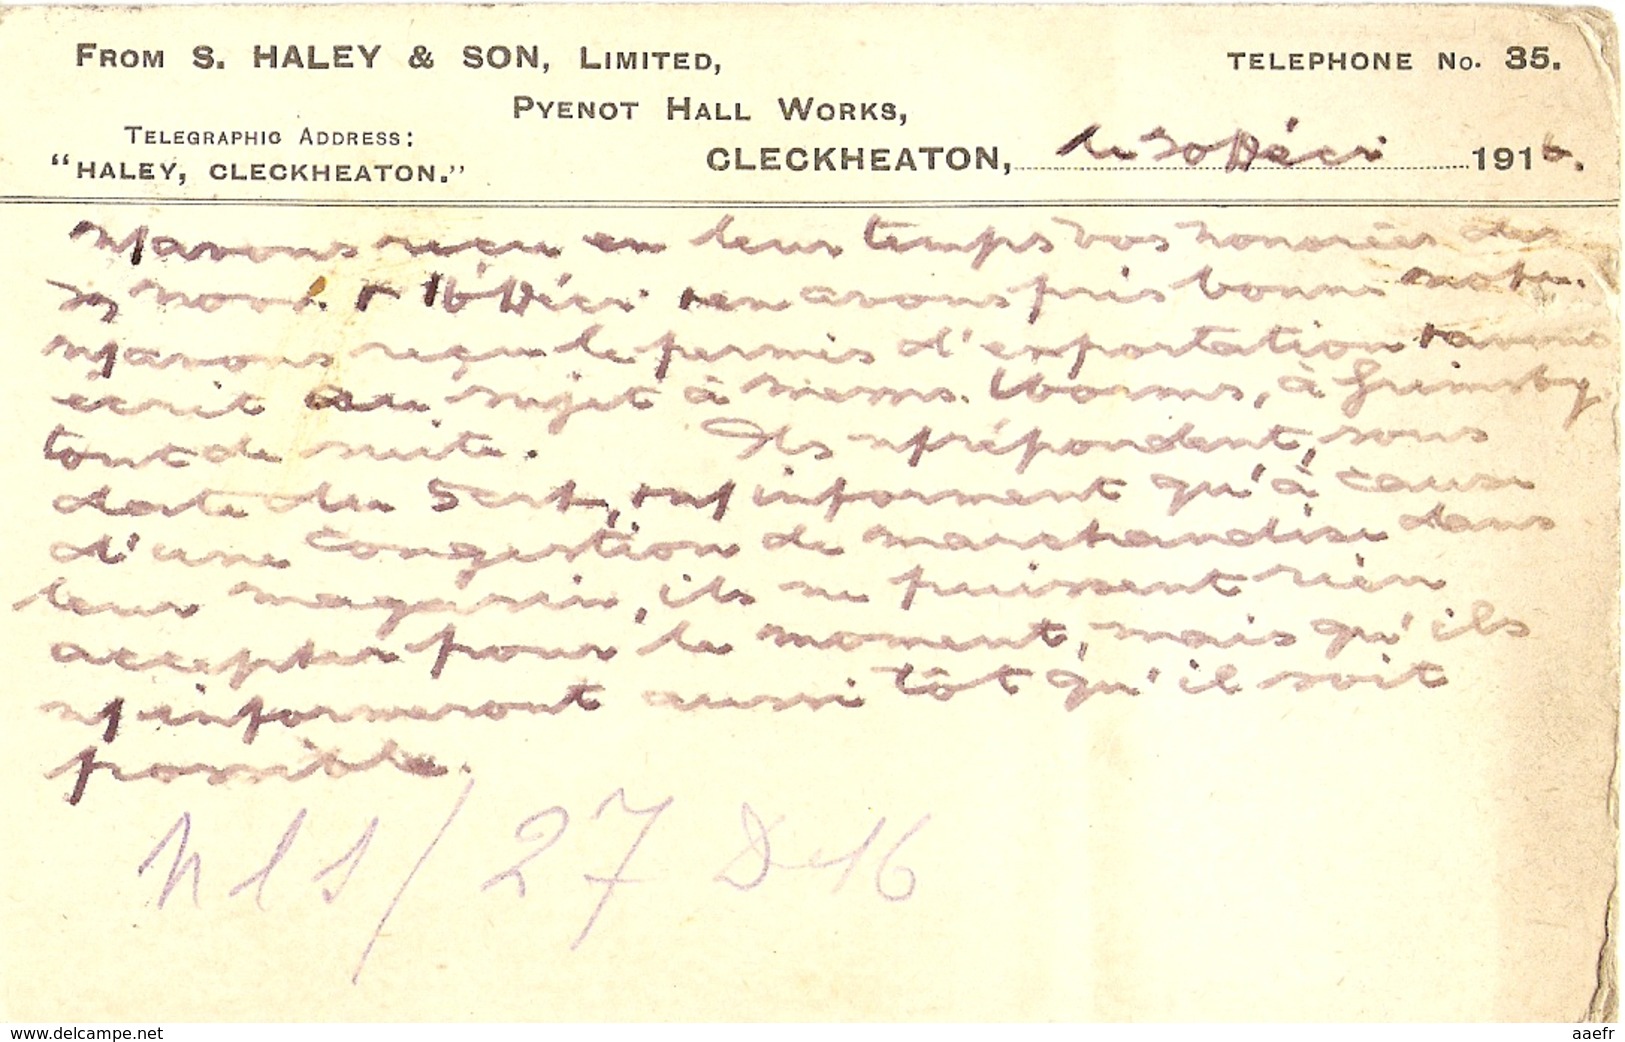 FROM S. HALEY & SON, LIMITED,
TELEPHONE No. 35.
PYENOT HALL WORKS,
TELEGRAPHIC ADDRESS:
"HALEY, CLECKHEATON."
CLECKHEATON, le 20 Déc: 1916.
n/avons reçu en leur temps vos honorées des
Nov. & 16 Déc: & en avons pris bonne note.
n/avons reçu le permis d'exportation & avons
écrit au sujet à Messrs. Worms, à Grimsby
tout de suite. Ils n/répondent, sous
date du & n/informent qu'à cause
d'une congestion de marchandise dans
leur magasin, ils ne puissent rien
accepter pour le moment, mais qu'ils
n/informeront aussi tôt qu'il soit
possible.
27 De 16
www.delcampe.net
aaefr